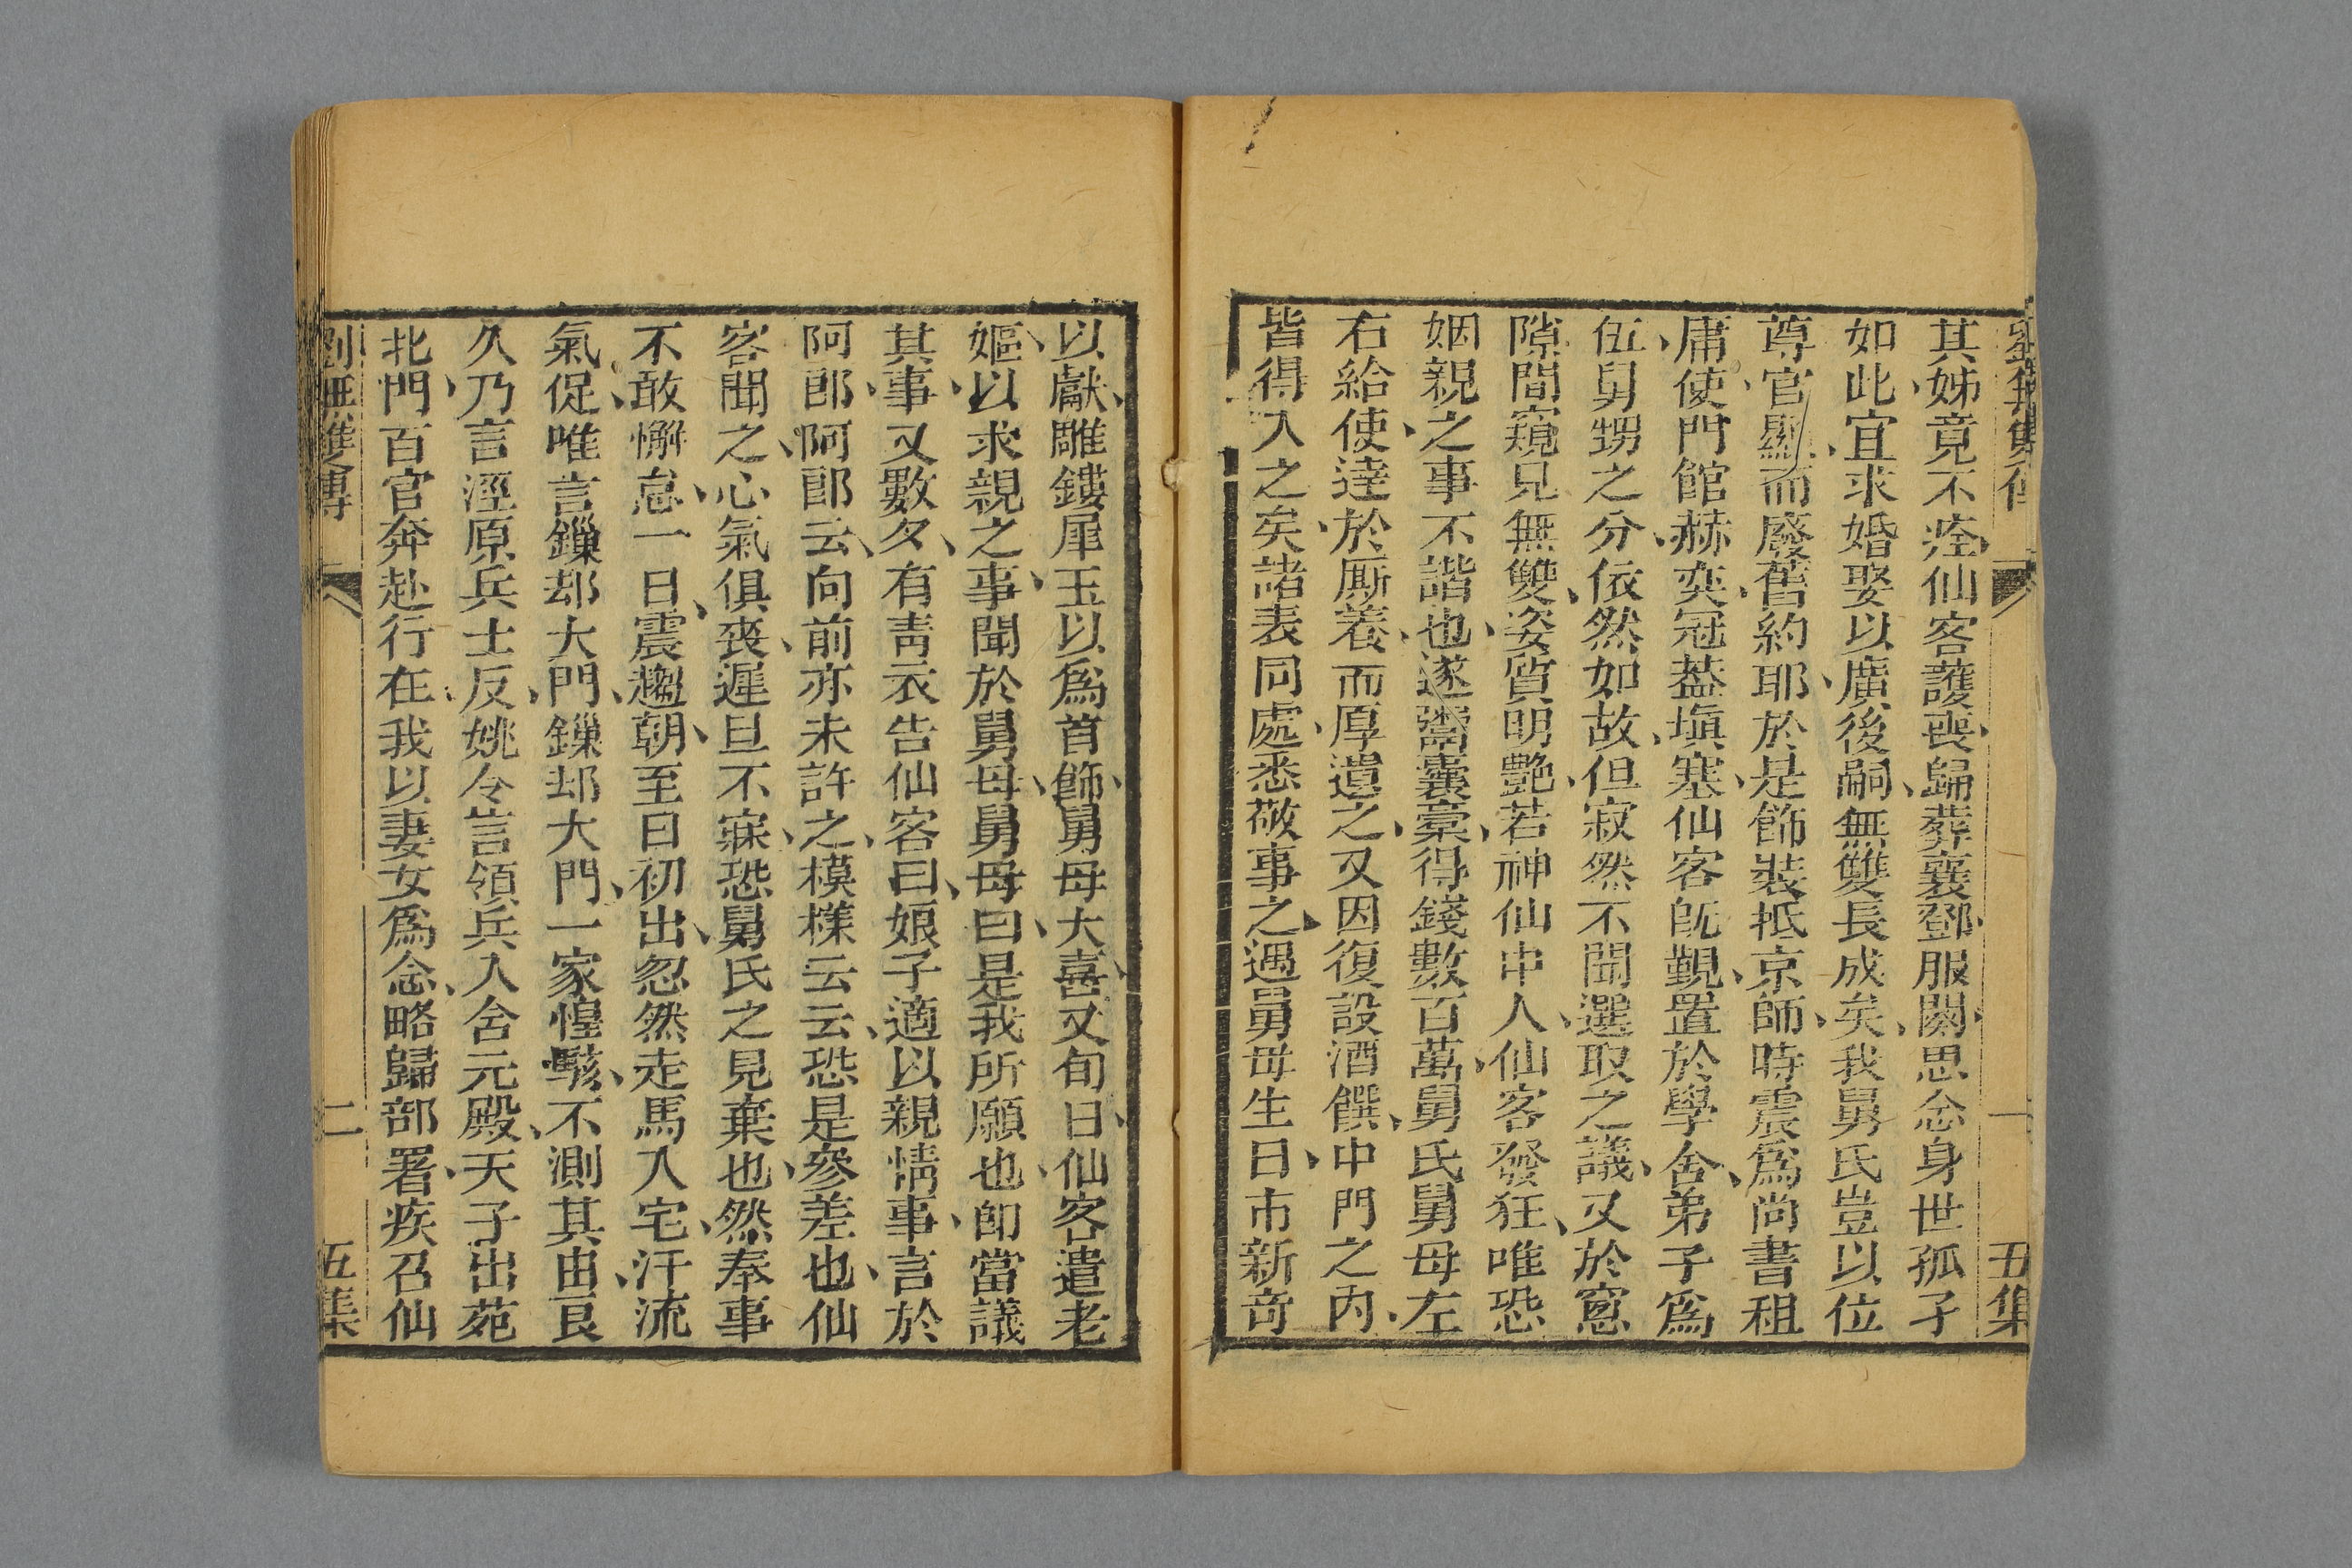 其姊竟不痊仙客護喪歸葬襄鄧服闋思念身世孤孑
如此宜求婚娶以廣後嗣無雙長成矣我舅氏豈以位
尊官顯而廢舊約耶於是飾裝抵京師時震爲尚書租
庸使門館赫奕冠蓋塡塞仙客旣覲置於學舍弟子爲
伍舅甥之分依然如故但寂然不聞選取之議又於窗
隙間窺見無雙姿質明艷若神仙中人仙客發狂唯恐
姻親之事不諧也遂鬻囊橐得錢數百萬舅氏舅母左
右給使達於厮養而厚遺之又因復設酒饌中門之內
皆得入之矣諸表同處悉敬事之遇舅母生日市新奇
以獻雕鏤犀玉以爲首飾舅母大喜又旬日仙客遣老
嫗以求親之事聞於舅母舅母曰是我所願也卽當議
其事又數夕有靑衣告仙客曰娘子適以親情事言於
阿郎阿郎云向前亦未許之模樣云云恐是參差也仙
客聞之心氣俱喪遲旦不寐恐舅氏之見棄也然奉事
不敢懈怠一日震趨朝至日初出忽然走馬入宅汗流
氣促唯言鏁却大門鏁却大門一家惶駭不測其由良
久乃言涇原兵士反姚令言領兵入含元殿天子出苑
北門百官奔赴行在我以妻女爲念略歸部署疾召仙
劉無雙傳 二 五集